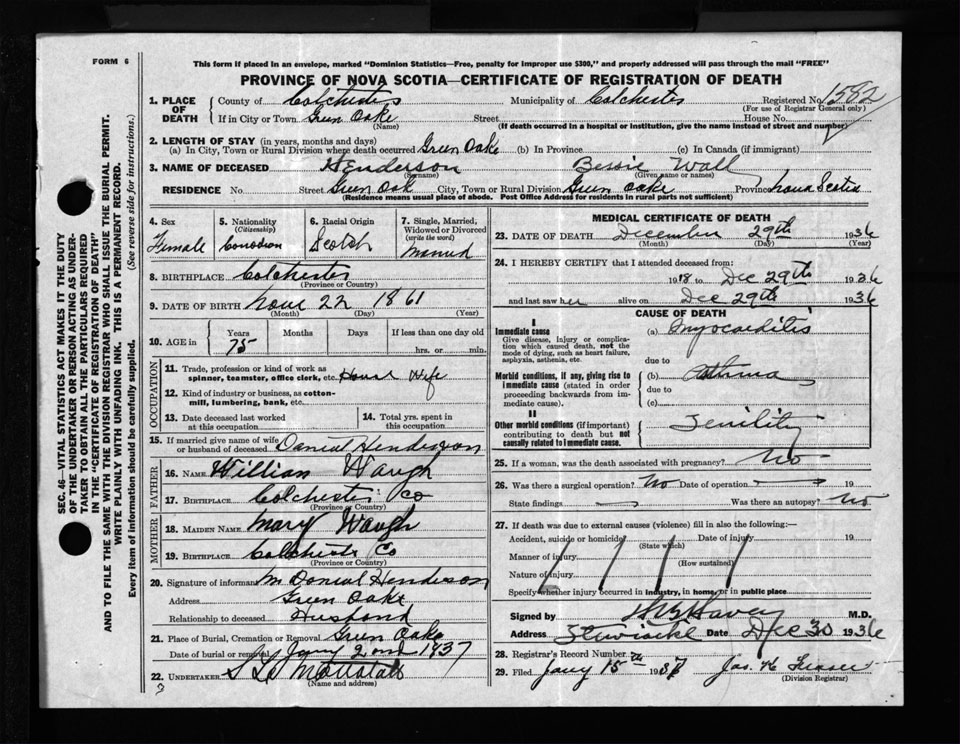 FORM 6
This form if placed in an envelope, marked "Dominion Statistics—Free, penalty for improper use $300," and properly addressed will pass through the mail "FREE"
PROVINCE OF NOVA SCOTIA—CERTIFICATE OF REGISTRATION OF DEATH
1. PLACE OF DEATH { County of Colchester Municipality of Colchester Registered No. 1582
(For use of Registrar General only)
If in City or Town Green Oake Street House No.
(Name) (If death occurred in a hospital or institution, give the name instead of street and number)
2. LENGTH OF STAY (in years, months and days)
(a) In City, Town or Rural Division where death occurred Green Oake (b) In Province (c) In Canada (if immigrant)
3. NAME OF DECEASED Henderson Bessie Wall
(Surname) (Given name or names)
RESIDENCE No. Street Green Oak City, Town or Rural Division Green Oake Province Nova Scotia
(Residence means usual place of abode. Post Office Address for residents in rural parts not sufficient)
SEC. 46—VITAL STATISTICS ACT MAKES IT THE DUTY
OF THE UNDERTAKER OR PERSON ACTING AS UNDER-
TAKER TO OBTAIN ALL THE PARTICULARS REQUIRED
IN THE "CERTIFICATE OF REGISTRATION OF DEATH"
AND TO FILE THE SAME WITH THE DIVISION REGISTRAR WHO SHALL ISSUE THE BURIAL PERMIT.
WRITE PLAINLY WITH UNFADING INK. THIS IS A PERMANENT RECORD.
Every item of information should be carefully supplied. (See reverse side for instructions.)
4. Sex
Female
5. Nationality
(Citizenship)
Canadian
6. Racial Origin
Scotch
7. Single, Married,
Widowed or Divorced
(write the word)
Married
8. BIRTHPLACE Colchester
(Province or Country)
9. DATE OF BIRTH Nov 22 1861
(Month) (Day) (Year)
10. AGE in { Years Months Days If less than one day old
75 hrs. or min.
OCCUPATION
11. Trade, profession or kind of work as
spinner, teamster, office clerk, etc. House Wife
12. Kind of industry or business, as cotton-
mill, lumbering, bank, etc.
13. Date deceased last worked
at this occupation
14. Total yrs. spent in
this occupation
15. If married give name of wife
or husband of deceased Daniel Henderson
FATHER
16. NAME William Waugh
17. BIRTHPLACE Colchester Co
(Province or Country)
MOTHER
18. MAIDEN NAME Mary Waugh
19. BIRTHPLACE Colchester Co
(Province or Country)
20. Signature of informant M Daniel Henderson
Address Green Oake
Relationship to deceased Husband
21. Place of Burial, Cremation or Removal Green Oake
Date of burial or removal Jany 2ond 1937
22. UNDERTAKER
(Name and address)
MEDICAL CERTIFICATE OF DEATH
23. DATE OF DEATH December 29th 1936
(Month) (Day) (Year)
24. I HEREBY CERTIFY that I attended deceased from:
1918 to Dec 29th 1936
and last saw her alive on Dec 29th 1936
CAUSE OF DEATH
I
Immediate cause
Give disease, injury or complica-
tion which caused death, not the
mode of dying, such as heart failure,
asphyxia, asthenia, etc.
(a) Myocarditis
due to
Morbid conditions, if any, giving rise to
immediate cause (stated in order
proceeding backwards from im-
mediate cause).
(b) Asthma
due to
(c)
II
Other morbid conditions (if important)
contributing to death but not
causally related to immediate cause.
Senility
25. If a woman, was the death associated with pregnancy? No
26. Was there a surgical operation? No Date of operation 19
State findings Was there an autopsy? No
27. If death was due to external causes (violence) fill in also the following:—
Accident, suicide or homicide Date of injury 19
(State which)
Manner of injury
(How sustained)
Nature of injury
Specify whether injury occurred in industry, in home, or in public place
Signed by M.D.
Address Stewiacke Date Dec 30 1936
28. Registrar's Record Number
29. Filed Jany 15th 1937 Jas. H Fraser
(Division Registrar)